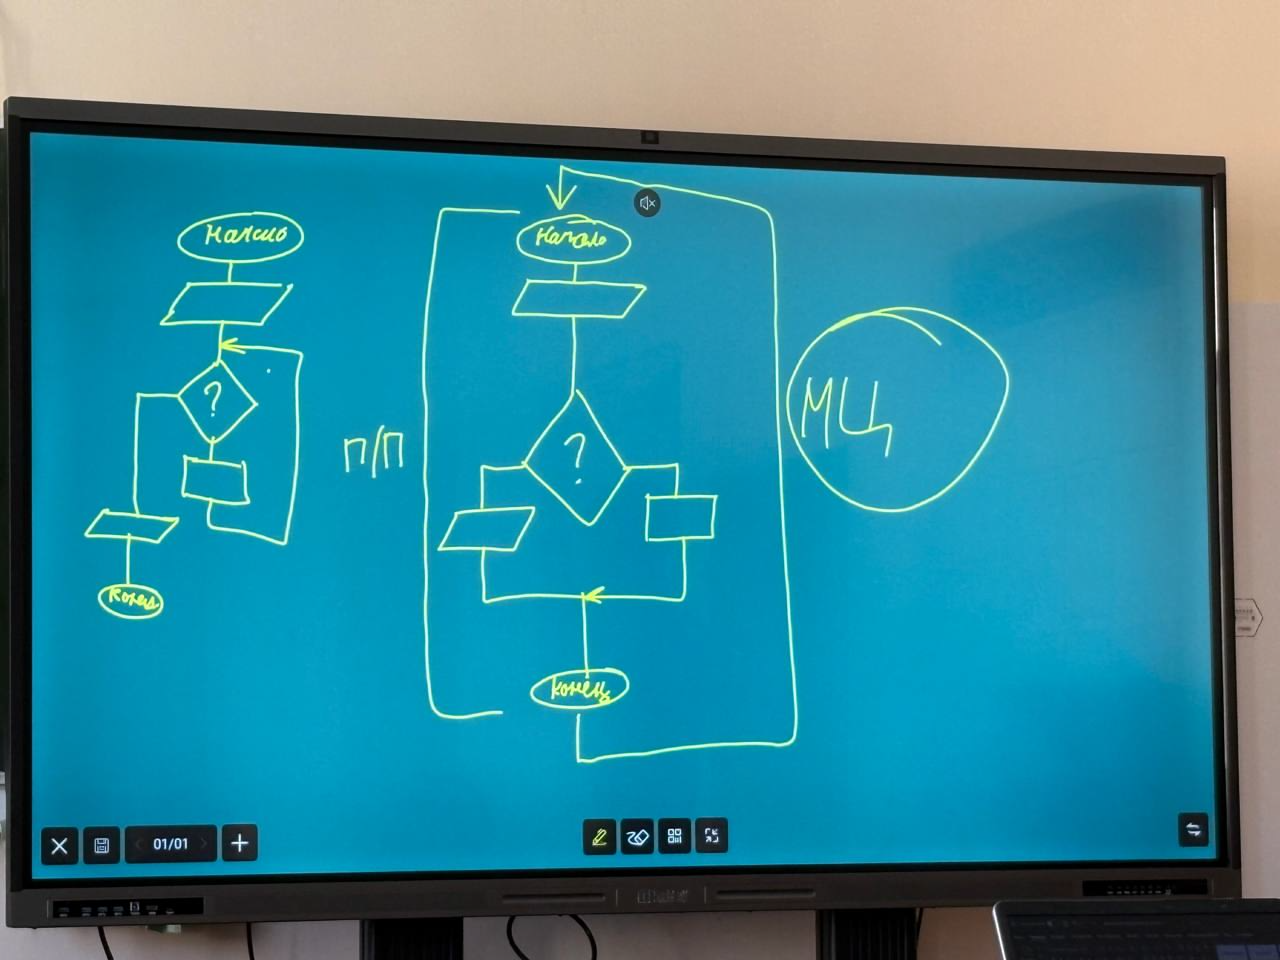 Начало
?
Конец
П/П
Начало
?
Конец
МЦ
01/01